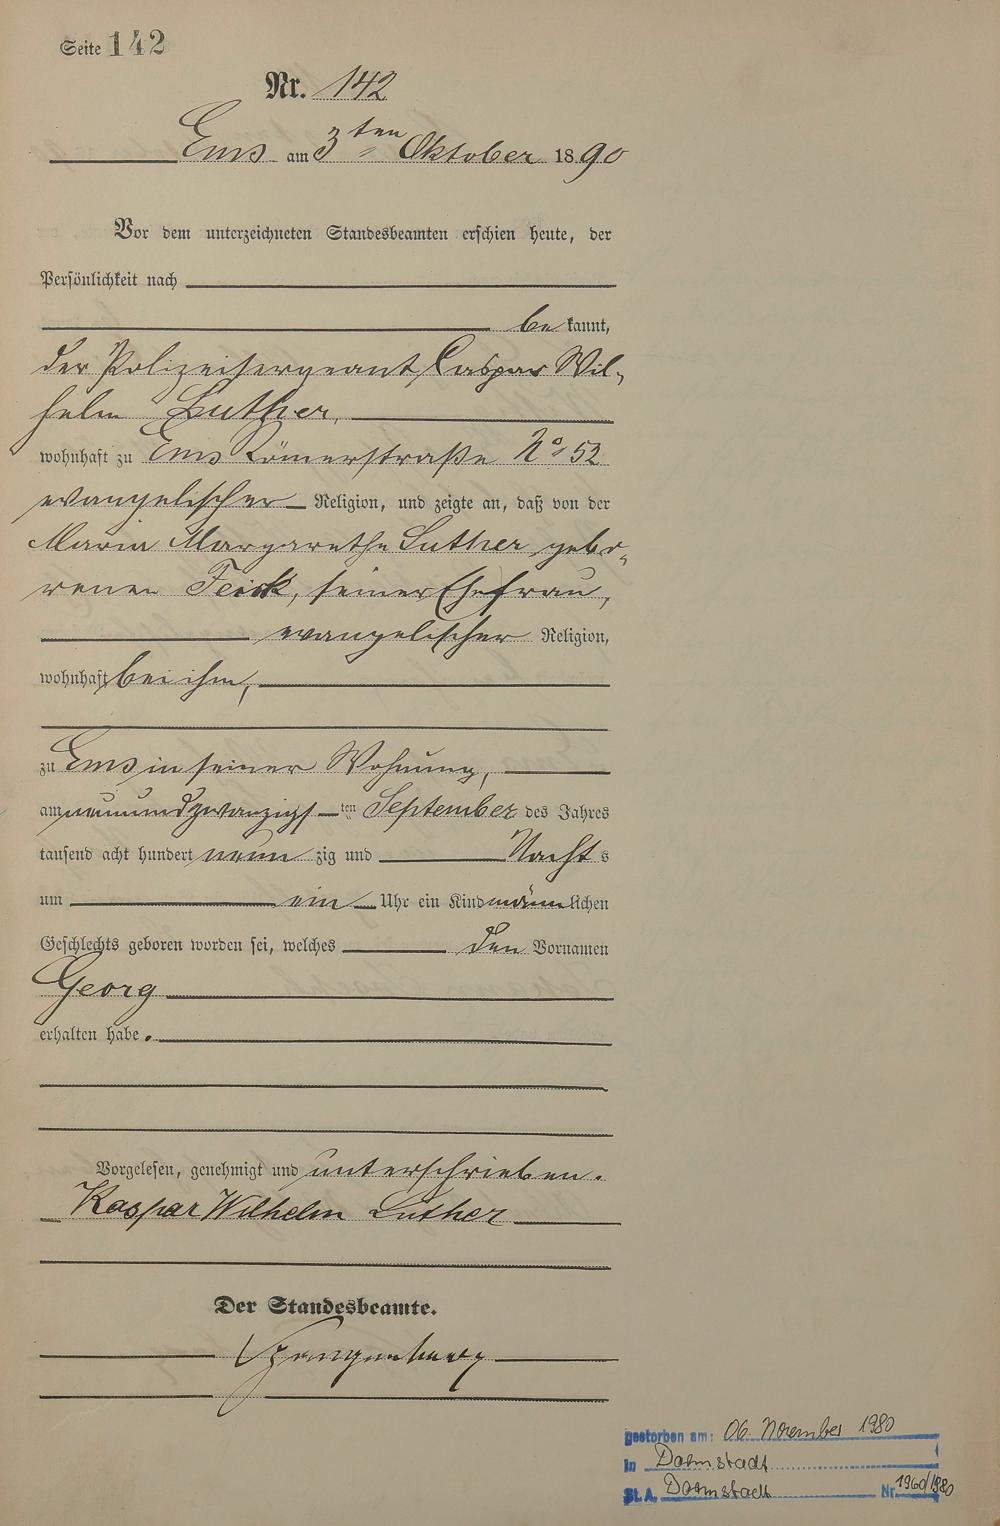 Seite 142
Nr. 142
Ems am 3ten Oktober 1890
Vor dem unterzeichneten Standesbeamten erschien heute, der
Persönlichkeit nach
be kannt,
der Polizeisergeant Caspar Wil-
helm Luther,
wohnhaft zu Ems Römerstraße No 52
evangelischer Religion, und zeigte an, daß von der
Maria Margarethe Luther gebo-
renen Feick, seiner Ehefrau,
evangelischer Religion,
wohnhaft bei ihm,
zu Ems in seiner Wohnung,
am neunundzwanzigs ten September des Jahres
tausend acht hundert neun zig und Nacht s
um ein Uhr ein Kind männ lichen
Geschlechts geboren worden sei, welches den Vornamen
Georg
erhalten habe.
Vorgelesen, genehmigt und unterschrieben.
Kaspar Wilhelm Luther
Der Standesbeamte.
gestorben am: 06. November 1980
in Darmstadt
St.A. Darmstadt Nr. 1960/1980